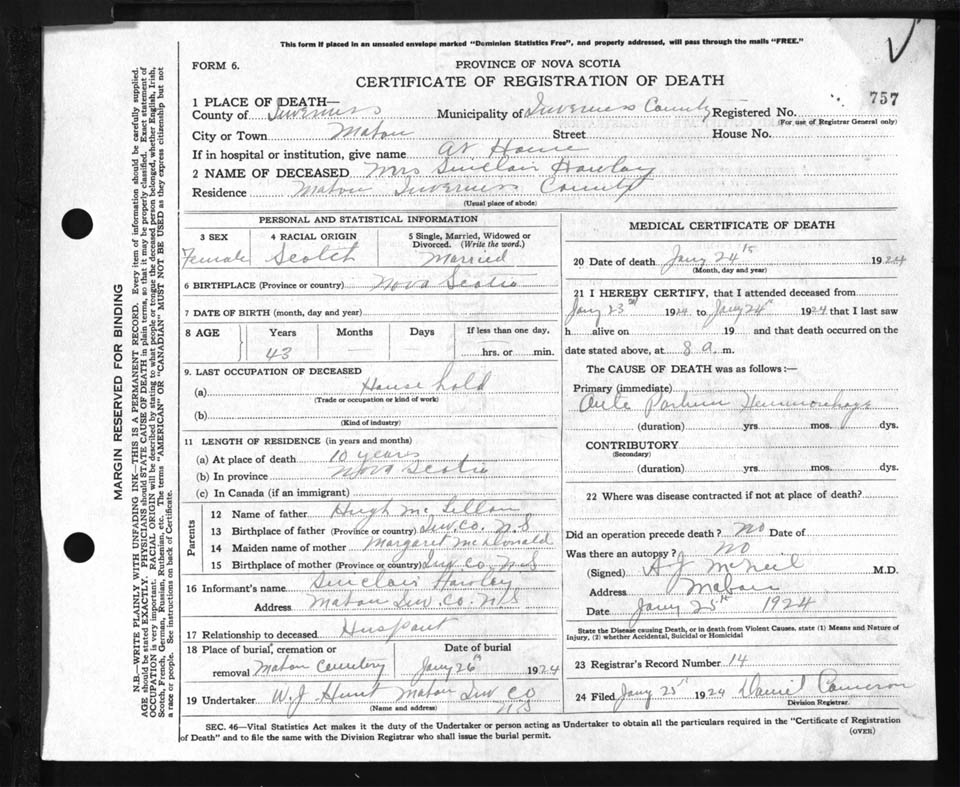 This form if placed in an unsealed envelope marked "Dominion Statistics Free", and properly addressed, will pass through the mails "FREE."
FORM 6.
PROVINCE OF NOVA SCOTIA
CERTIFICATE OF REGISTRATION OF DEATH
757
1 PLACE OF DEATH—
County of Inverness Municipality of Inverness County Registered No.
(For use of Registrar General only)
City or Town Mabou Street House No.
If in hospital or institution, give name at Home
2 NAME OF DECEASED Mrs Sinclair Hawley
Residence Mabou Inverness County
(Usual place of abode)
PERSONAL AND STATISTICAL INFORMATION
3 SEX 4 RACIAL ORIGIN 5 Single, Married, Widowed or Divorced. (Write the word.)
Female Scotch Married
6 BIRTHPLACE (Province or country) Nova Scotia
7 DATE OF BIRTH (month, day and year)
8 AGE Years Months Days If less than one day,
43 hrs. or min.
9. LAST OCCUPATION OF DECEASED
(a) House hold
(Trade or occupation or kind of work)
(b)
(Kind of industry)
11 LENGTH OF RESIDENCE (in years and months)
(a) At place of death 10 years
(b) In province Nova Scotia
(c) In Canada (if an immigrant)
Parents
12 Name of father Hugh McLellan
13 Birthplace of father (Province or country) Inv. Co. N.S
14 Maiden name of mother Margaret McDonald
15 Birthplace of mother (Province or country) Inv Co N.S
16 Informant's name Sinclair Hawley
Address Mabou Inv. Co. N.S
17 Relationship to deceased
18 Place of burial, cremation or removal Mabou Cemetery
Date of burial Jany 26th 1924
19 Undertaker W. J Hunt Mabou Inv Co
N.S
(Name and address)
MEDICAL CERTIFICATE OF DEATH
20 Date of death Jany 24th 1924
(Month, day and year)
21 I HEREBY CERTIFY, that I attended deceased from
Jany 23rd 1924 to Jany 24th 1924 that I last saw
h alive on 19 and that death occurred on the
date stated above, at 8 a. m.
The CAUSE OF DEATH was as follows:—
Primary (immediate)
Ante Partum Hemmorrhage
(duration) yrs. mos. dys.
CONTRIBUTORY
(Secondary)
(duration) yrs. mos. dys.
22 Where was disease contracted if not at place of death?
Did an operation precede death? No Date of
Was there an autopsy? No
(Signed) A J McNeil M.D.
Address Mabou
Date Jany 25th 1924
State the Disease causing Death, or in death from Violent Causes, state (1) Means and Nature of
Injury, (2) whether Accidental, Suicidal or Homicidal
23 Registrar's Record Number 14
24 Filed Jany 25th 1924 Daniel Cameron
Division Registrar.
SEC. 46—Vital Statistics Act makes it the duty of the Undertaker or person acting as Undertaker to obtain all the particulars required in the "Certificate of Registration
of Death" and to file the same with the Division Registrar who shall issue the burial permit.
(OVER)
MARGIN RESERVED FOR BINDING
N.B.—WRITE PLAINLY WITH UNFADING INK—THIS IS A PERMANENT RECORD. Every item of information should be carefully supplied.
AGE should be stated EXACTLY. PHYSICIANS should STATE CAUSE OF DEATH in plain terms, so that it may be properly classified. Exact statement of
OCCUPATION is very important. RACIAL ORIGIN will be described by stating to what people or tongue the deceased person belonged, whether English, Irish,
Scotch, French, German, Russian, Ruthenian, etc. The terms "AMERICAN" OR "CANADIAN" MUST NOT BE USED as they express citizenship but not
a race or people. See instructions on back of Certificate.